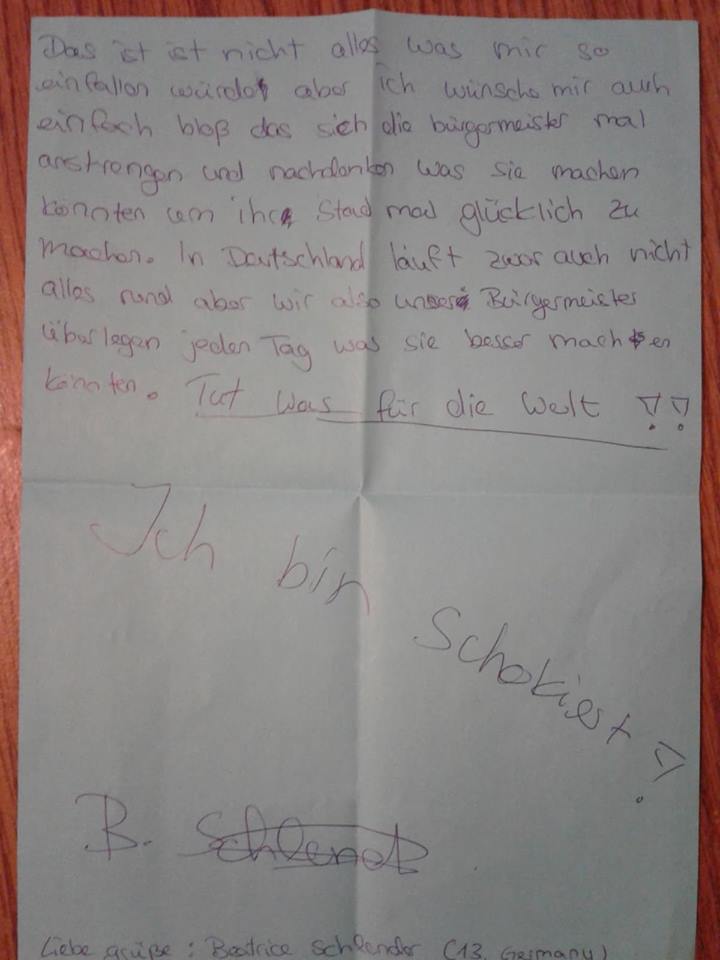 Das ist ist nicht alles was mir so
einfallen würde aber ich wünsche mir auch
einfach bloß das sich die bürgermeister mal
anstrengen und nachdenken was sie machen
könnten um ihre Stad mal glücklich zu
machen. In Deutschland läuft zwar auch nicht
alles rund aber wir also unsere Bürgermeister
überlegen jeden Tag was sie besser machen
könnten. Tut was für die Welt !!
Ich bin Schokiert !
B. Schlender
Liebe grüße : Beatrice Schlender (13, Germany)